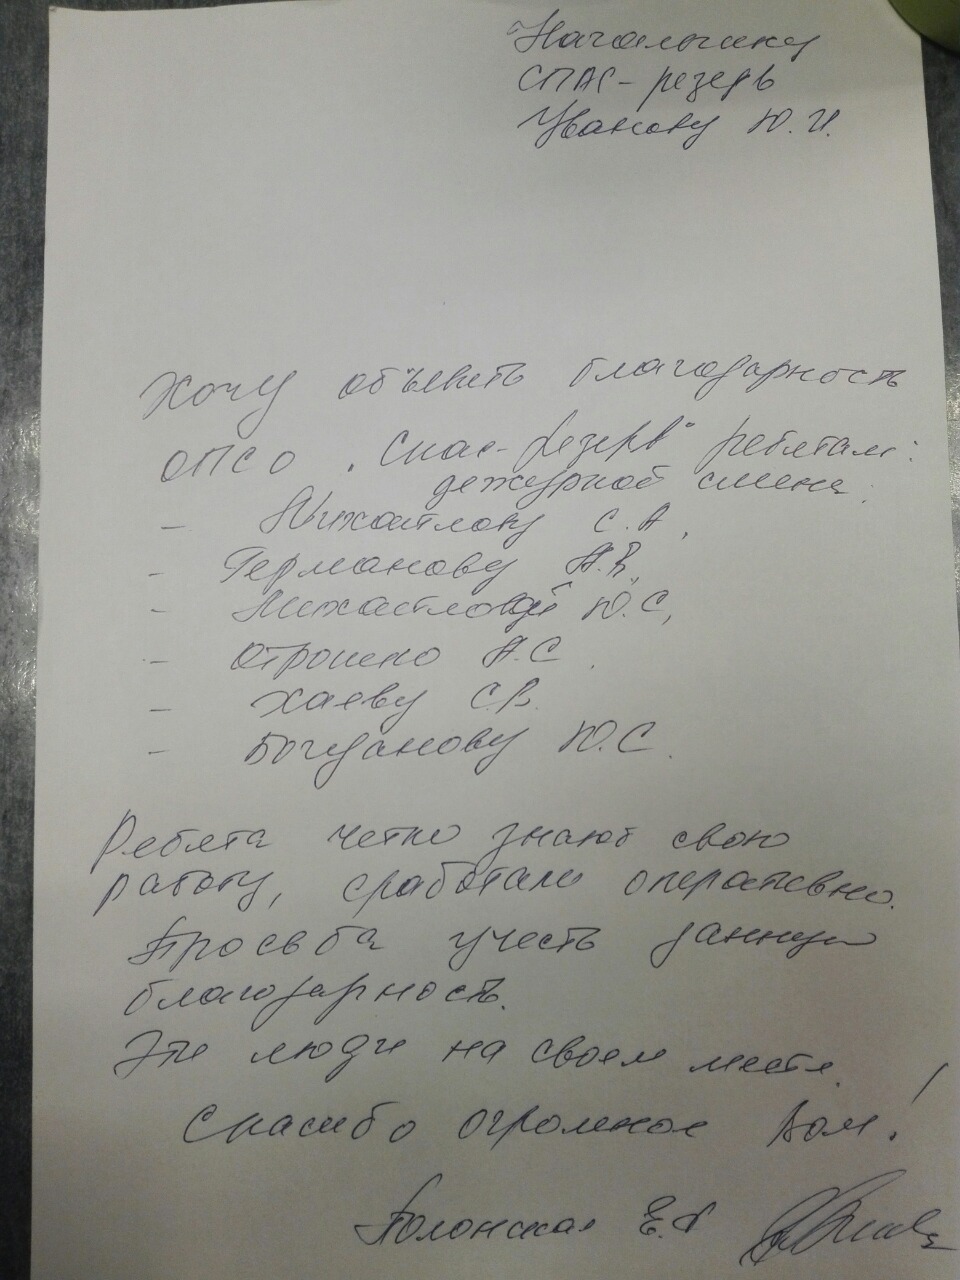 Начальнику
СПАС-резерв
Иванову Ю.И.
Хочу объявить благодарность
ОПСО "Спас-резерв" ребятам:
дежурной смены:
- Михайлову С.А,
- Германову А.В,
- Михайловой Ю.С,
- Отрошко А.С.
- Хаеву С.В.
- Богданову Ю.С.
Ребята четко знают свою
работу, сработали оперативно.
Просьба учесть данную
благодарность.
Эти люди на своем месте.
Спасибо огромное Вам!
Полонская Е.А